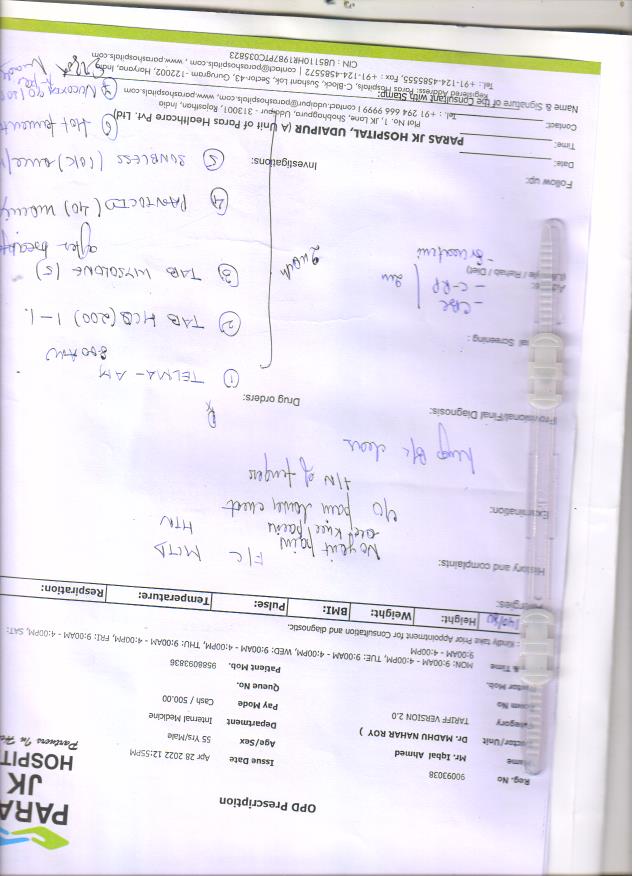 PARA
JK
HOSPIT
Partners In He
OPD Prescription
Reg. No 90093038 Issue Date Apr 28 2022 12:55PM
Name Mr. Iqbal Ahmed Age/Sex 55 Yrs/Male
Doctor/Unit Dr. MADHU NAHAR ROY ) Department Internal Medicine
Category TARIFF VERSION 2.0 Pay Mode Cash / 500.00
Room No Queue No.
Doctor Mob. Patient Mob. 9588093836
& Time MON: 9:00AM - 4:00PM, TUE: 9:00AM - 4:00PM, WED: 9:00AM - 4:00PM, THU: 9:00AM - 4:00PM, FRI: 9:00AM - 4:00PM, SAT:
9:00AM - 4:00PM
: Kindly take Prior Appointment for Consultation and diagnostic.
140/80 Height: Weight: BMI: Pulse: Temperature: Respiration:
Allergies:
History and complaints:
F/C MCTD
HTN
No joint pain
knee pain
c/o pain lower chest
of fingers
Examination:
Lungs B/L clear
Provisional/Final Diagnosis:
Drug orders:
Rx
① TELMA - AM
8:00 AM
② TAB HCQ (200) 1-1
③ TAB WYSOLONE (5)
after breakfa
④ PANTOCID (40)
⑤ SUNBLESS (60K) once/
⑥ Hot foment
⑦ Nucoxia 90
- CBC
- CRP
Follow up:
Date:
Time:
Contact:
Name & Signature of the Consultant with Stamp:
Investigations:
PARAS JK HOSPITAL, UDAIPUR (A Unit of Paras Healthcare Pvt. Ltd)
Plot No. 1, JK Lane, Shobhagpura, Udaipur - 313001, Rajasthan, India
Tel.: +91 294 666 9999 | contact.udaipur@parashospitals.com, www.parashospitals.com
Registered Address: Paras Hospitals, C-Block, Sushant Lok, Sector-43, Gurugram -122002, Haryana, India
Tel.: +91-124-4585555, Fax : +91-124-4585572 | contact@parashospitals.com , www.parashospitals.com
CIN : U85110HR1987PTC035823